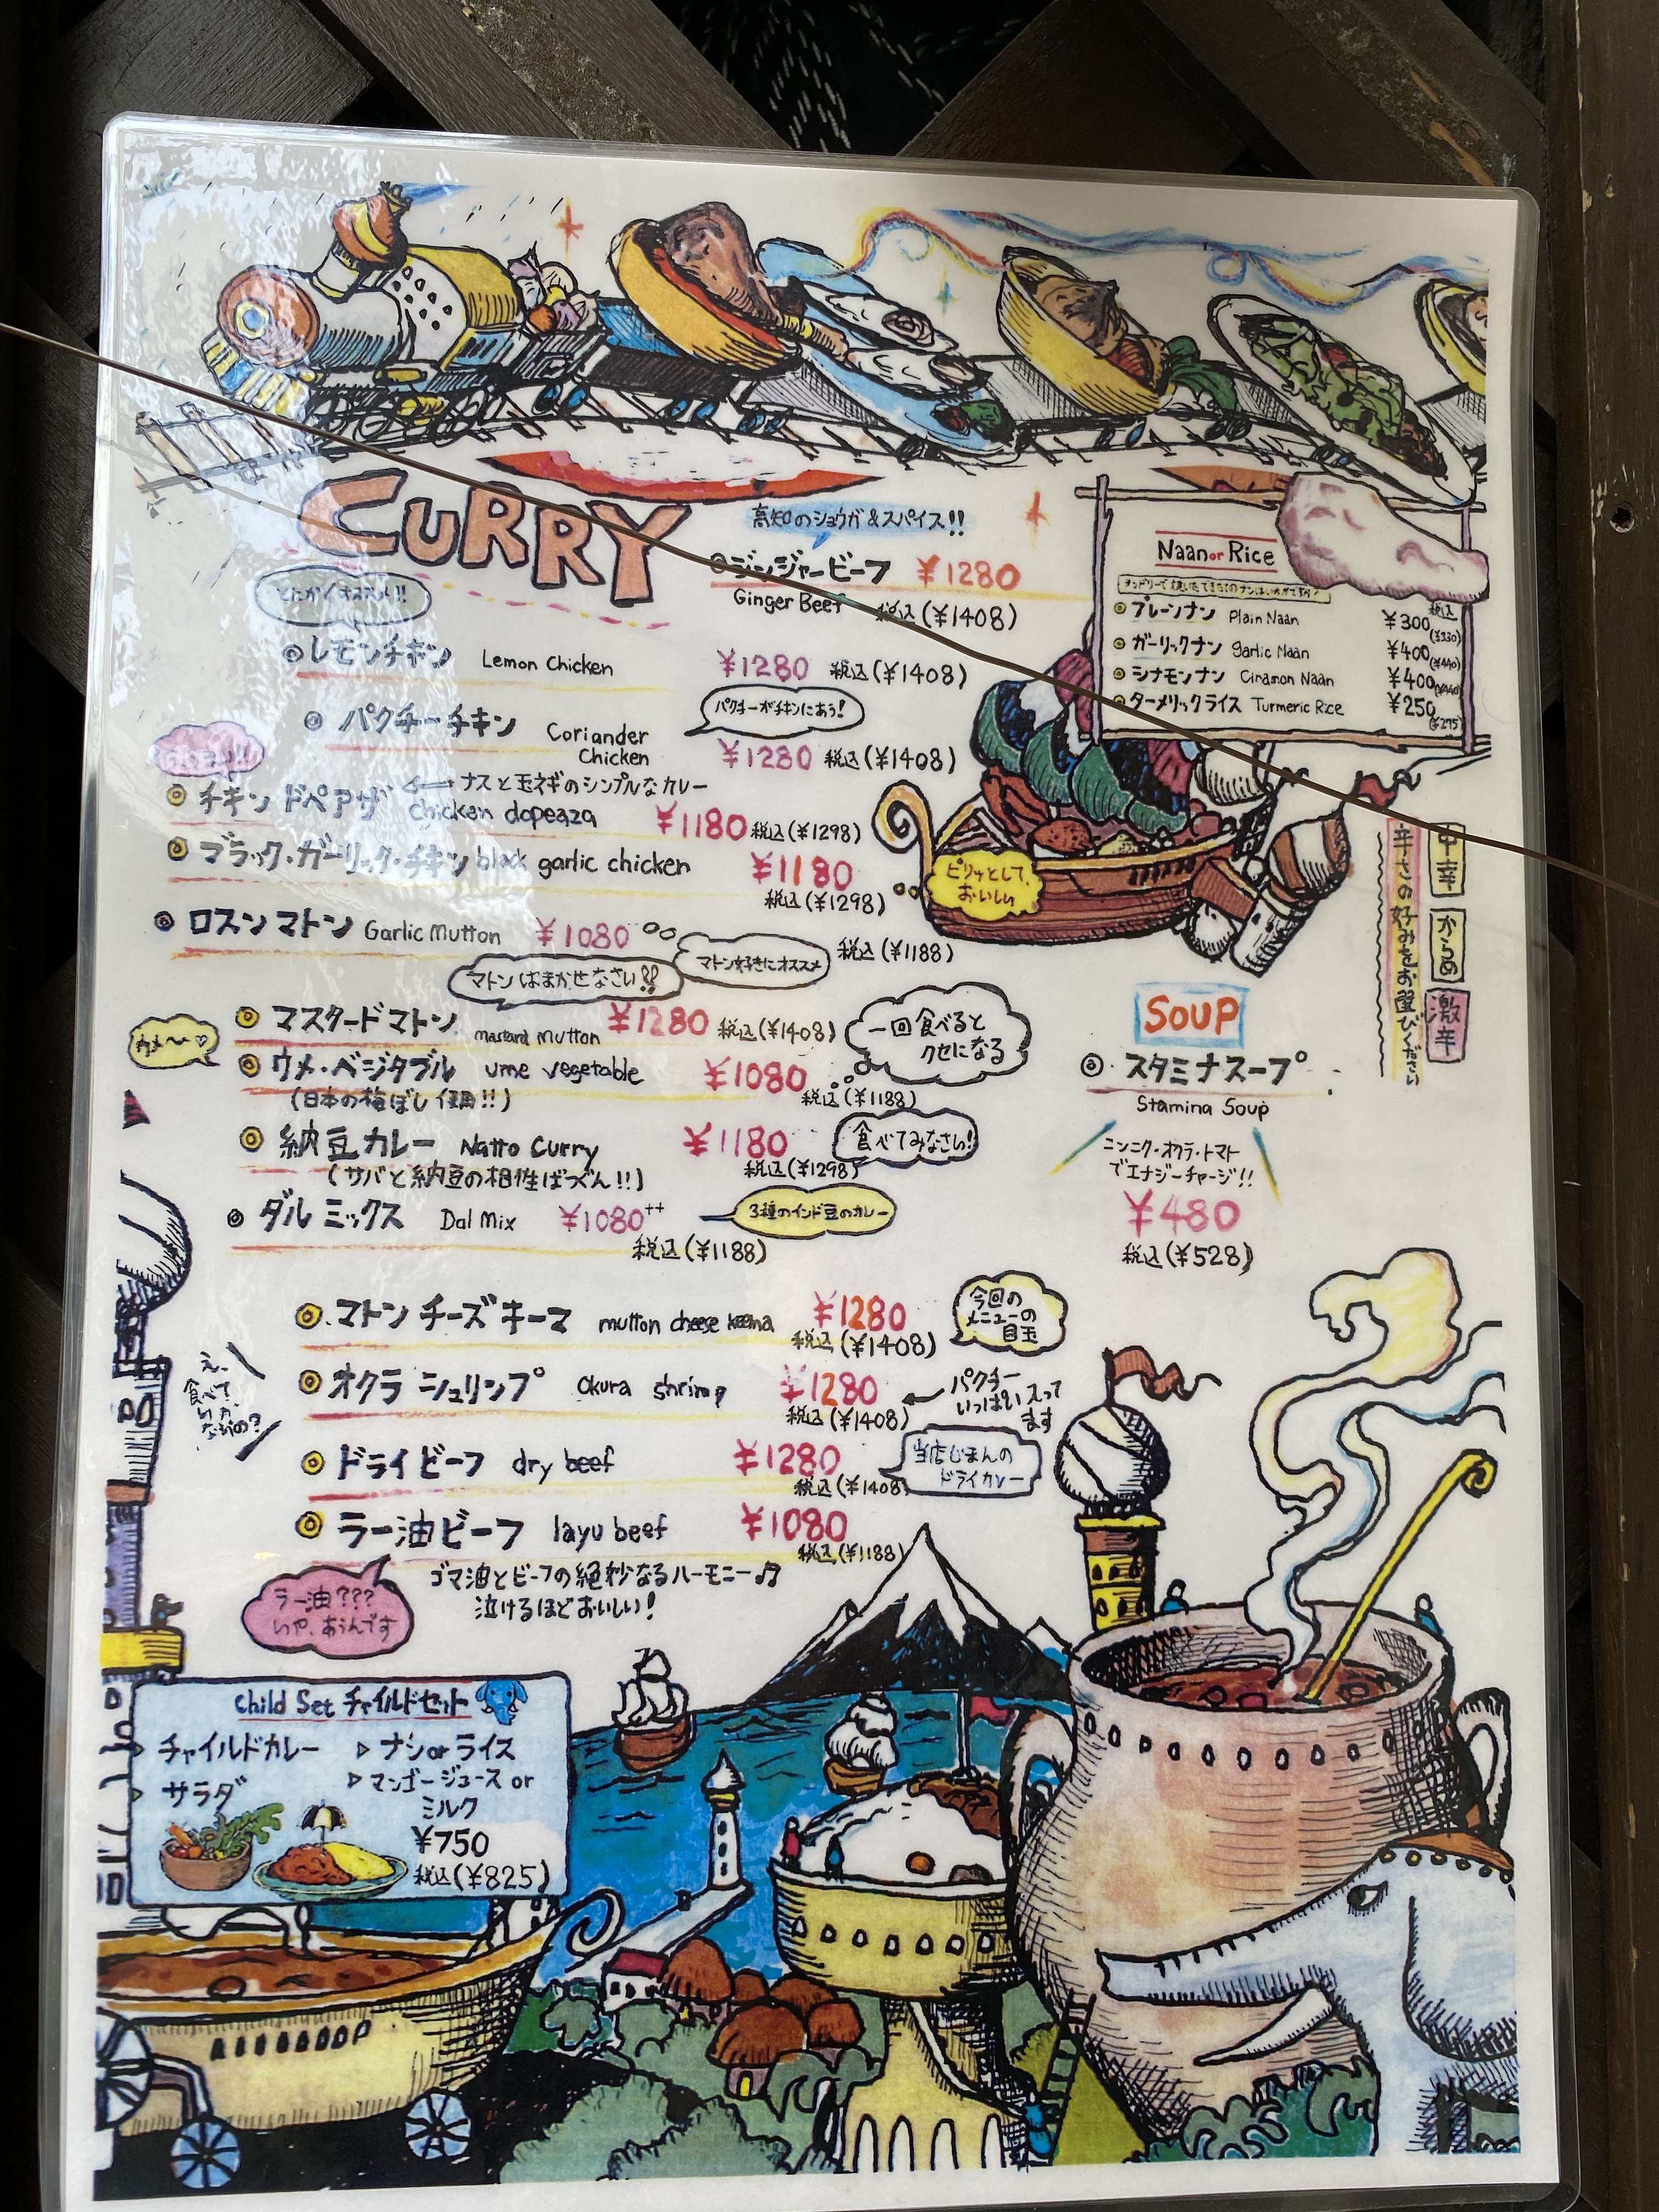 CURRY
高知のショウガ&スパイス!!
◎ジンジャービーフ ¥1280
Ginger Beef 税込(¥1408)
とにかくオススメ!!
◎レモンチキン Lemon Chicken ¥1280 税込(¥1408)
パクチーがチキンにあう!
◎パクチーチキン Coriander Chicken ¥1280 税込(¥1408)
◎チキンドペアザ ナスと玉ネギのシンプルなカレー
chicken dopeaza ¥1180 税込(¥1298)
◎ブラック・ガーリック・チキン black garlic chicken ¥1180
税込(¥1298)
◎ロスンマトン Garlic Mutton ¥1080 税込(¥1188)
マトン好きにオススメ
マトンはまかせなさい!!
◎マスタードマトン mastard mutton ¥1280 税込(¥1408)
一回食べると
クセになる
ウメ〜♡
◎ウメ・ベジタブル ume vegetable ¥1080
(日本の梅ぼし使用!!) 税込(¥1188)
◎納豆カレー Natto Curry ¥1180
食べてみなさい!
(サバと納豆の相性ばつぐん!!) 税込(¥1298)
◎ダルミックス Dal Mix ¥1080++
3種のインド豆のカレー
税込(¥1188)
◎マトンチーズキーマ mutton cheese keema ¥1280
税込(¥1408)
今回の
メニューの
目玉
え、
食べて
いか
ないの?
◎オクラシュリンプ okura shrimp ¥1280
税込(¥1408)
パクチー
いっぱい入って
ます
◎ドライビーフ dry beef ¥1280
税込(¥1408)
当店じまんの
ドライカレー
◎ラー油ビーフ layu beef ¥1080
税込(¥1188)
ゴマ油とビーフの絶妙なるハーモニー♫
泣けるほどおいしい!
ラー油???
いや、あうんです
Naan or Rice
税込
◎プレーンナン Plain Naan ¥300 (¥330)
◎ガーリックナン garlic Naan ¥400 (¥440)
◎シナモンナン Cinamon Naan ¥400 (¥440)
◎ターメリックライス Turmeric Rice ¥250 (¥275)
ピリッとして、
おいしい
中辛
からめ
激辛
辛さの好みをお選びください
SOUP
◎スタミナスープ
Stamina Soup
ニンニク・オクラ・トマト
でエナジーチャージ!!
¥480
税込(¥528)
Child Set チャイルドセット
チャイルドカレー
サラダ
▷ナンorライス
▷マンゴージュース or
ミルク
¥750
税込(¥825)